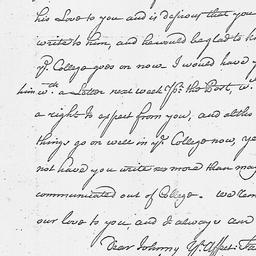 his Love to you and is desirous that you
write to him, and he would be glad to k
yr. College goes on now I would have y
him wth. a Letter next week p. the Post, w.
a right to expect from you, and altho
things go on well in yr. College now, ye
not have you write no more than may
communicated out of College. we
our love to you and I always am
Dear Johnny Yr. Affect: Fa